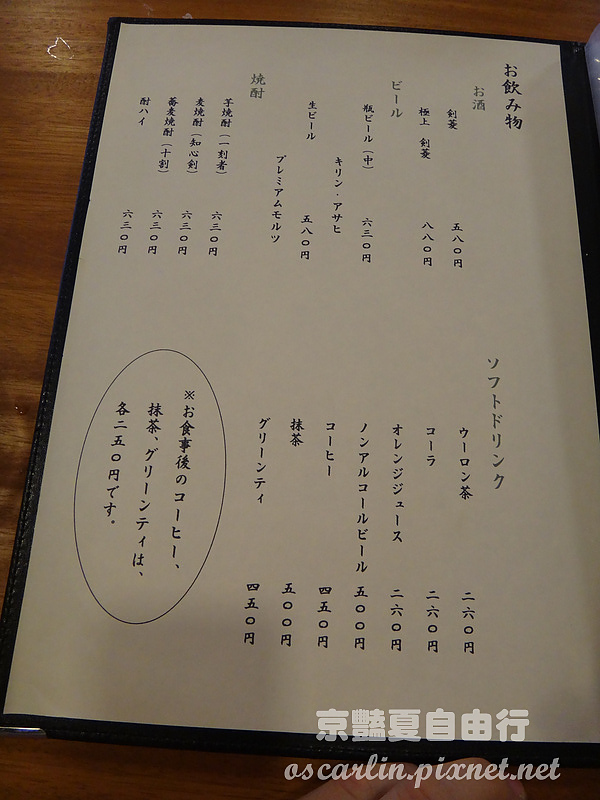 お飲み物
お酒
剣菱 五八〇円
極上 剣菱 八八〇円
ビール
瓶ビール(中) 六三〇円
キリン・アサヒ
生ビール 五八〇円
プレミアムモルツ
焼酎
芋焼酎(一刻者) 六三〇円
麦焼酎(知心剣) 六三〇円
蕎麦焼酎(十割) 六三〇円
酎ハイ 六三〇円
ソフトドリンク
ウーロン茶 二六〇円
コーラ 二六〇円
オレンジジュース 二六〇円
ノンアルコールビール 五〇〇円
コーヒー 四五〇円
抹茶 五〇〇円
グリーンティ 四五〇円
※お食事後のコーヒー、
抹茶、グリーンティは、
各二五〇円です。
京豔夏自由行
oscarlin.pixnet.net